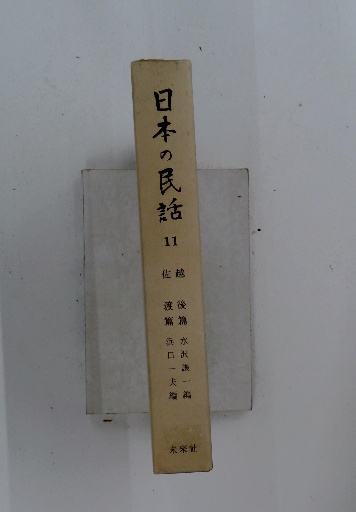 日本の民話
11
越後篇 水沢謙一編
佐渡篇 浜口一夫編
未来社